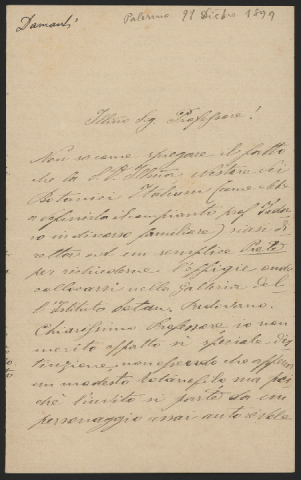 Damanti
Palermo 21 Dicbre 1899
Illmo Sig. Professore!
Non so come spiegare il fatto
che la S.V. Illma, Nestore dei
Botanici Italiani (come ebbe
a definirla il compianto prof. Todaro
in discorso familiare) siasi di
retta ad un semplice
per richiederne l'effigie onde
collocarsi nella Galleria del
l'Istituto botan.
Chiarissimo Professore, io non
merito affatto sì speciale dis
tinzione, non essendo che appena
un modesto botanofilo, ma poi
chè l'invito si parte da un
personaggio assai autorevole